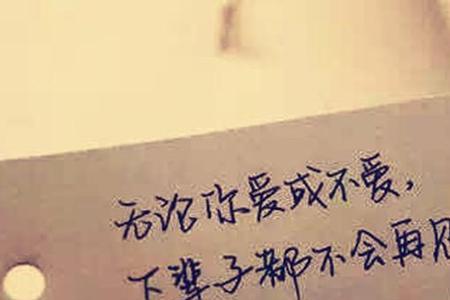 无论你爱或不爱，
下辈子都不会再见